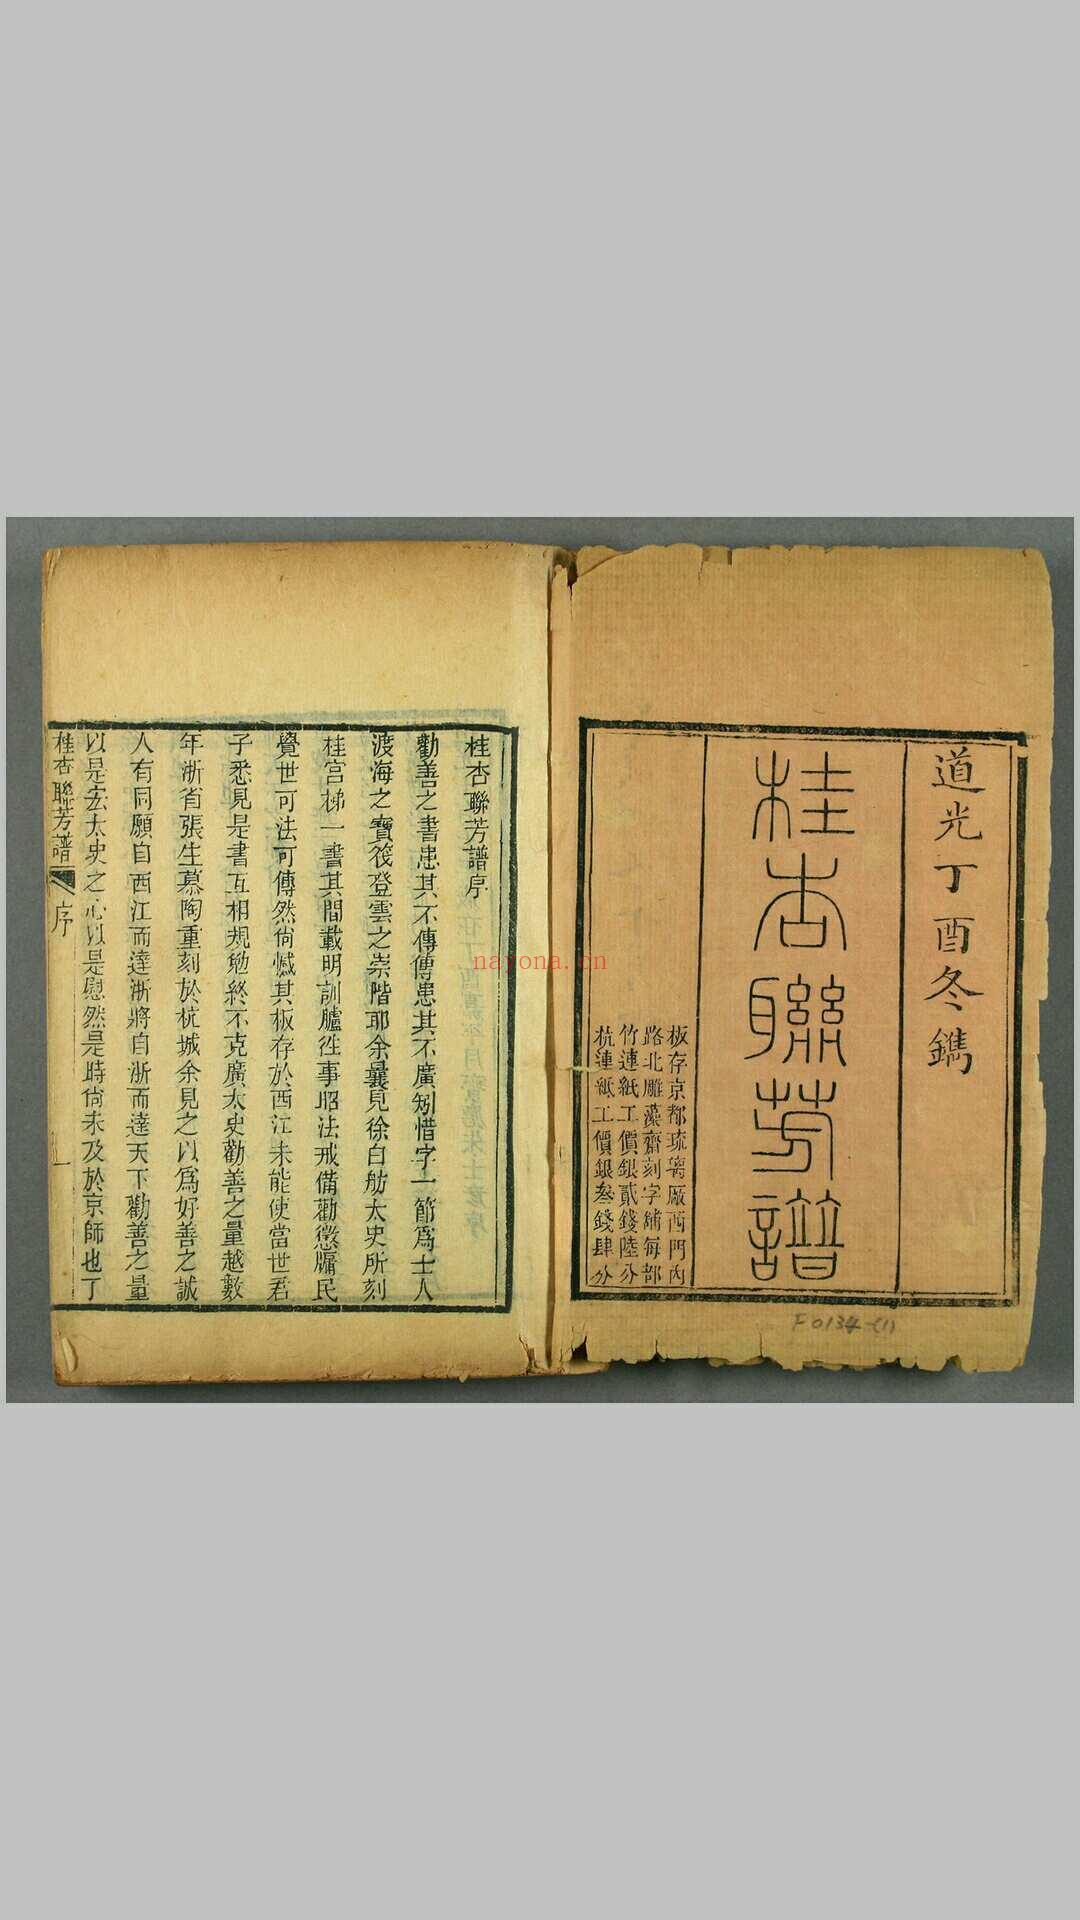 道光丁酉冬鐫
桂杏聯芳譜
板存京都琉璃厰西門內
路北雕藻齋刻字鋪每部
竹連紙工價銀貳錢陸分
杭連紙工價銀叁錢肆分
F0134-(1)
桂杏聯芳譜序
勸善之書患其不傳傳患其不廣矧惜字一節爲士人
渡海之寶筏登雲之崇階耶余曩見徐白舫太史所刻
桂宮梯一書其間載明訓臚徃事昭法戒備勸懲牖民
覺世可法可傳然尙憾其板存於西江未能使當世君
子悉見是書互相規勉終不克廣太史勸善之量越數
年浙省張生慕陶重刻於杭城余見之以爲好善之誠
人有同願自西江而達浙將自浙而達天下勸善之量
以是宏太史之心以是慰然是時尙未及於京師也丁
桂杏聯芳譜 序 一
nayona.cn